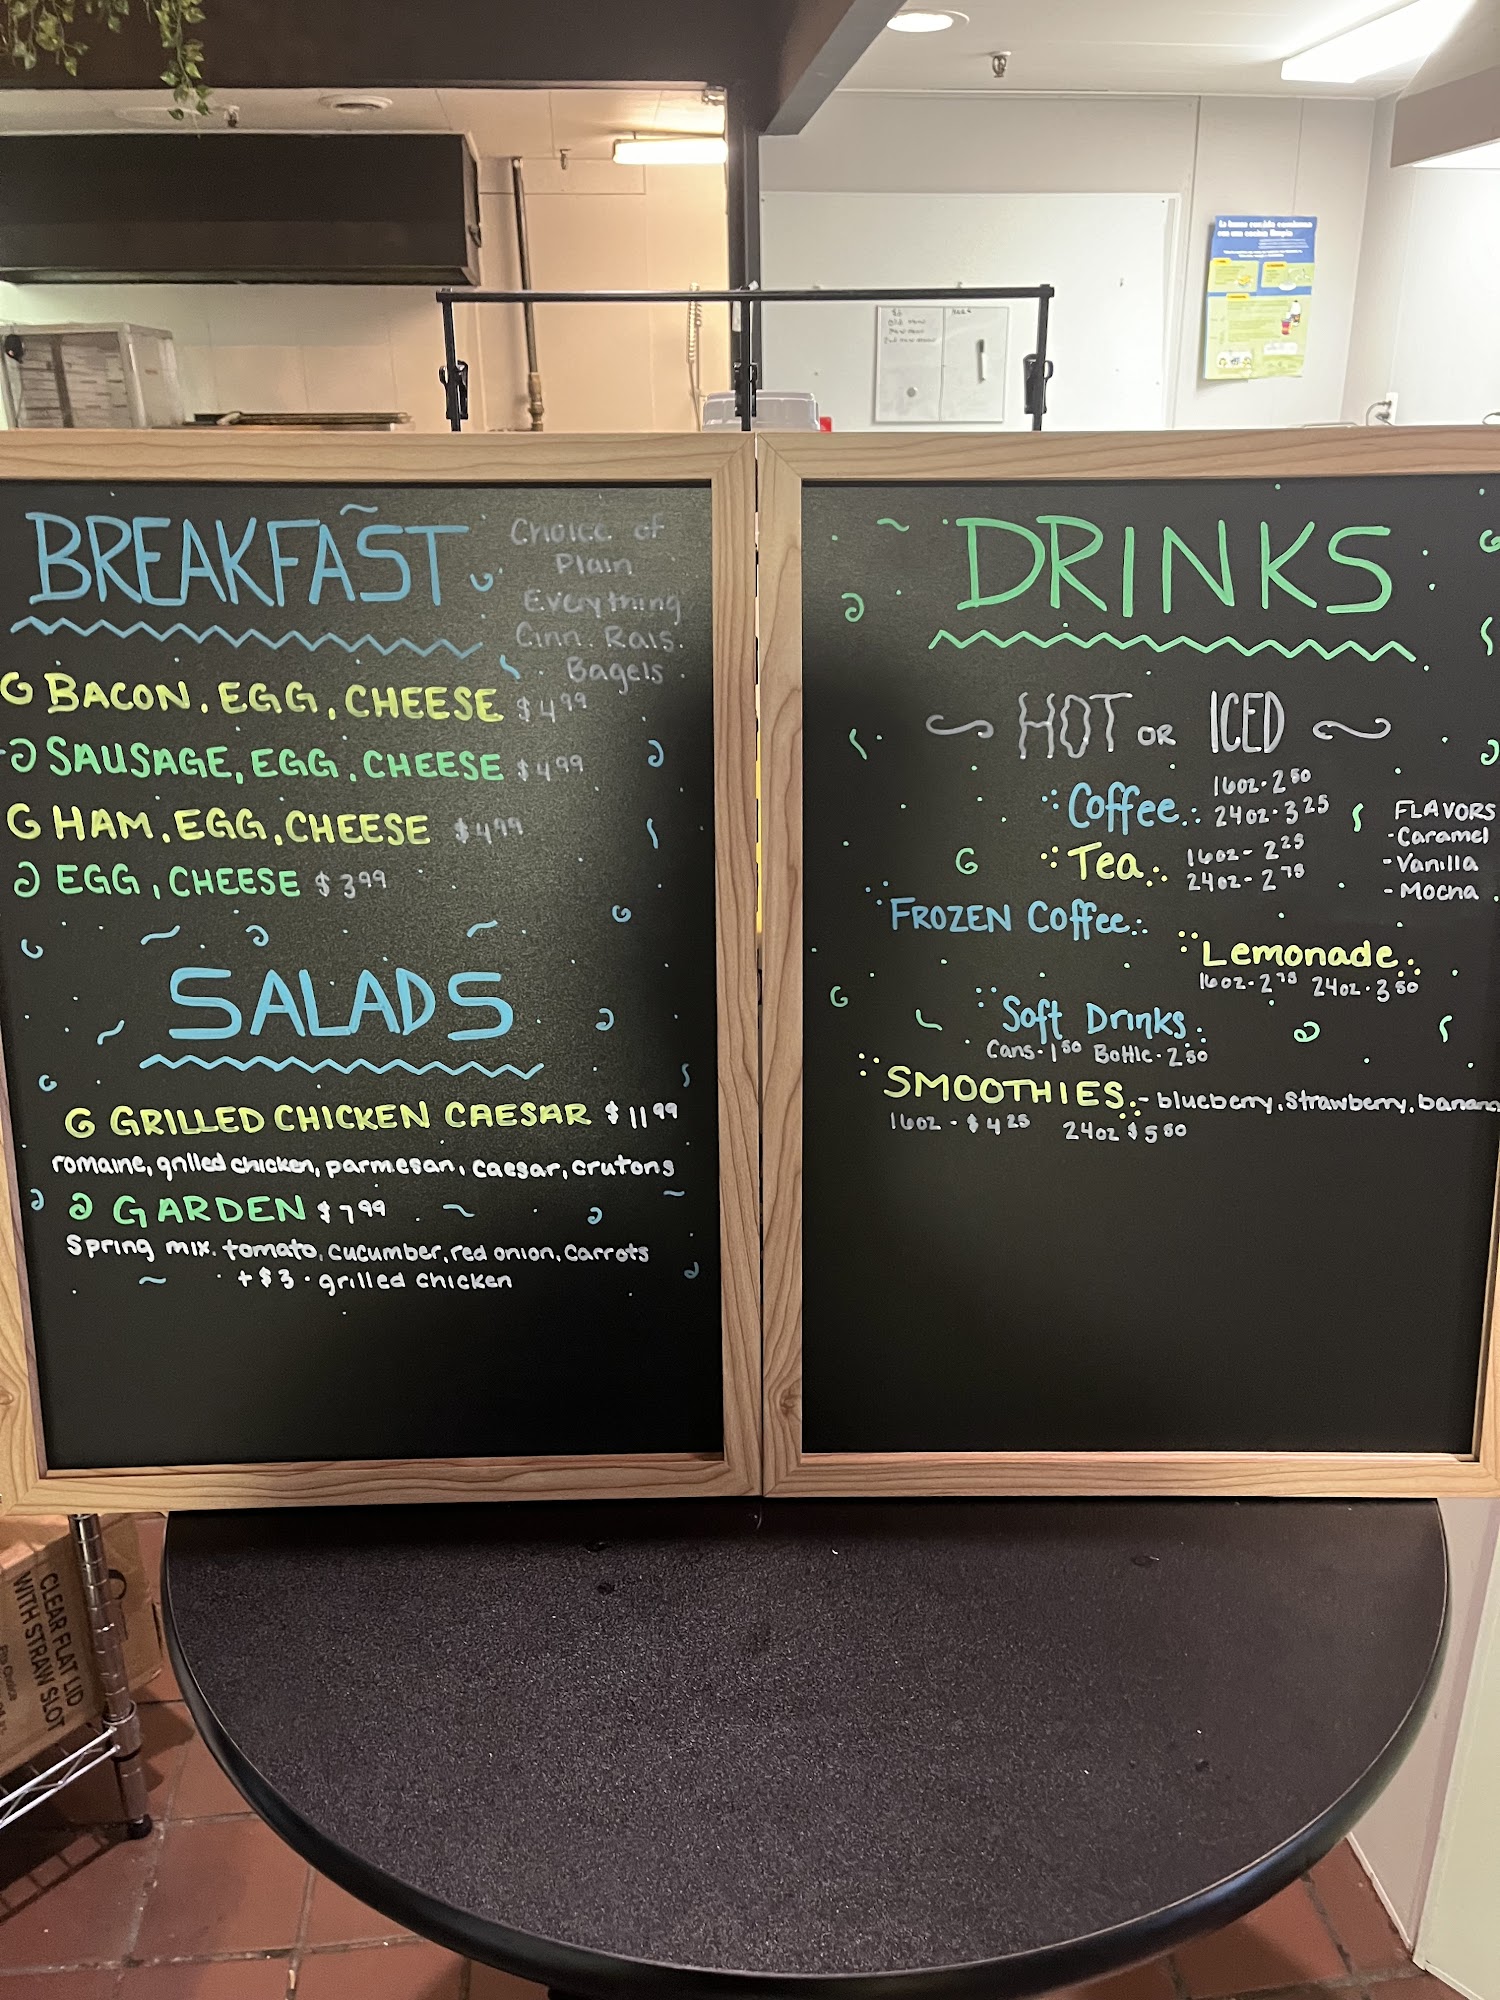 BREAKFAST
Choice of
Plain
Everything
Cinn. Rais.
Bagels
BACON, EGG, CHEESE $4.99
SAUSAGE, EGG, CHEESE $4.99
HAM, EGG, CHEESE $4.99
EGG, CHEESE $3.99
SALADS
GRILLED CHICKEN CAESAR $11.99
romaine, grilled chicken, parmesan, caesar, crutons
GARDEN $7.99
Spring mix. tomato, cucumber, red onion, carrots
+$3 · grilled chicken
DRINKS
HOT OR ICED
Coffee
16oz · 2.50
24oz · 3.25
Tea
16oz - 2.25
24oz - 2.75
FLAVORS
- Caramel
- Vanilla
- Mocha
FROZEN Coffee
Lemonade
16oz - 2.75 24oz · 3.50
Soft Drinks
Cans · 1.50 Bottle · 2.50
SMOOTHIES - blueberry, strawberry, banana
16oz - $4.25 24oz $5.50
CLEAR FLAT LID
WITH STRAW SLOT